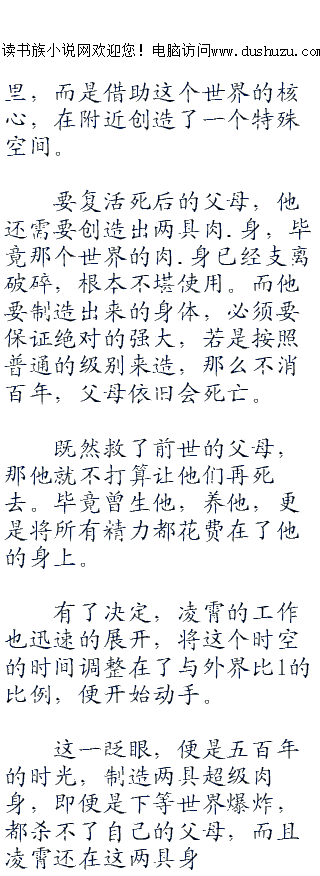 读书族小说网欢迎您！电脑访问www.dushuzu.com
里，而是借助这个世界的核
心，在附近创造了一个特殊
空间。
要复活死后的父母，他
还需要创造出两具肉.身，毕
竟那个世界的肉.身已经支离
破碎，根本不堪使用。而他
要制造出来的身体，必须要
保证绝对的强大，若是按照
普通的级别来造，那么不消
百年，父母依旧会死亡。
既然救了前世的父母，
那他就不打算让他们再死
去。毕竟曾生他，养他，更
是将所有精力都花费在了他
的身上。
有了决定，凌霄的工作
也迅速的展开，将这个时空
的时间调整在了与外界比1的
比例，便开始动手。
这一眨眼，便是五百年
的时光，制造两具超级肉
身，即便是下等世界爆炸，
都杀不了自己的父母，而且
凌霄还在这两具身